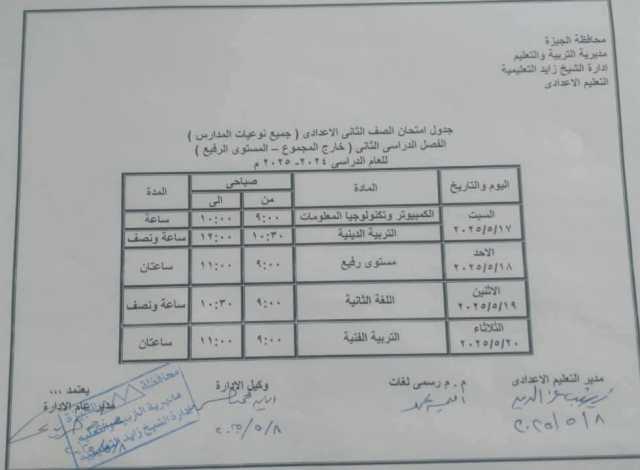 محافظة الجيزة
مديرية التربية والتعليم
إدارة الشيخ زايد التعليمية
التعليم الاعدادى
جدول امتحان الصف الثانى الاعدادى ( جميع نوعيات المدارس )
الفصل الدراسى الثانى ( خارج المجموع – المستوى الرفيع )
للعام الدراسى ٢٠٢٤- ٢٠٢٥ م
اليوم والتاريخ المادة صباحى المدة
من الى
السبت ٢٠٢٥/٥/١٧ الكمبيوتر وتكنولوجيا المعلومات ٩:٠٠ ١٠:٠٠ ساعة
التربية الدينية ١٠:٣٠ ١٢:٠٠ ساعة ونصف
الاحد ٢٠٢٥/٥/١٨ مستوى رفيع ٩:٠٠ ١١:٠٠ ساعتان
الاثنين ٢٠٢٥/٥/١٩ اللغة الثانية ٩:٠٠ ١٠:٣٠ ساعة ونصف
الثلاثاء ٢٠٢٥/٥/٢٠ التربية الفنية ٩:٠٠ ١١:٠٠ ساعتان
مدير التعليم الاعدادى م . م رسمى لغات وكيل الإدارة يعتمد ...
مدير عام الادارة
٢٠٢٥/٥/٨ ٢٠٢٥/٥/٨
محافظة
مديرية التربية والتعليم
إدارة الشيخ زايد